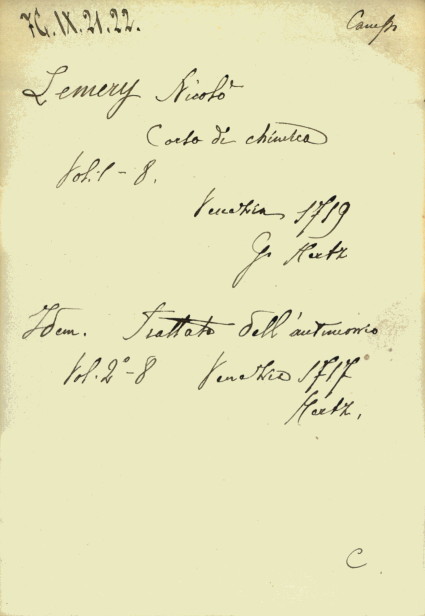 7G.IX.21.22.
Lemery Nicolò
Corso di chimica
Vol. 1 - 8.
Venezia 1719
G. Hertz
Idem. Trattato dell'antimonio
Vol. 2º - 8 Venezia 1717
Hertz.
C